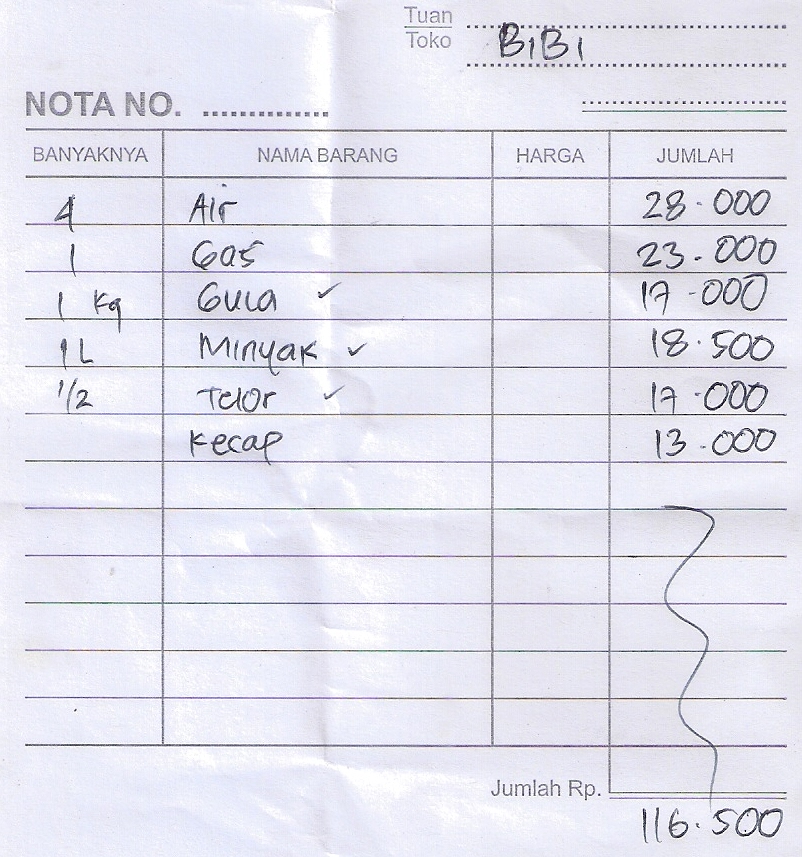 Tuan
Toko BiBi
NOTA NO.
BANYAKNYA NAMA BARANG HARGA JUMLAH
4 Air 28.000
1 Gas 23.000
1 Kg Gula ✓ 17.000
1 L Minyak ✓ 18.500
1/2 Telor ✓ 17.000
Kecap 13.000
Jumlah Rp. 116.500